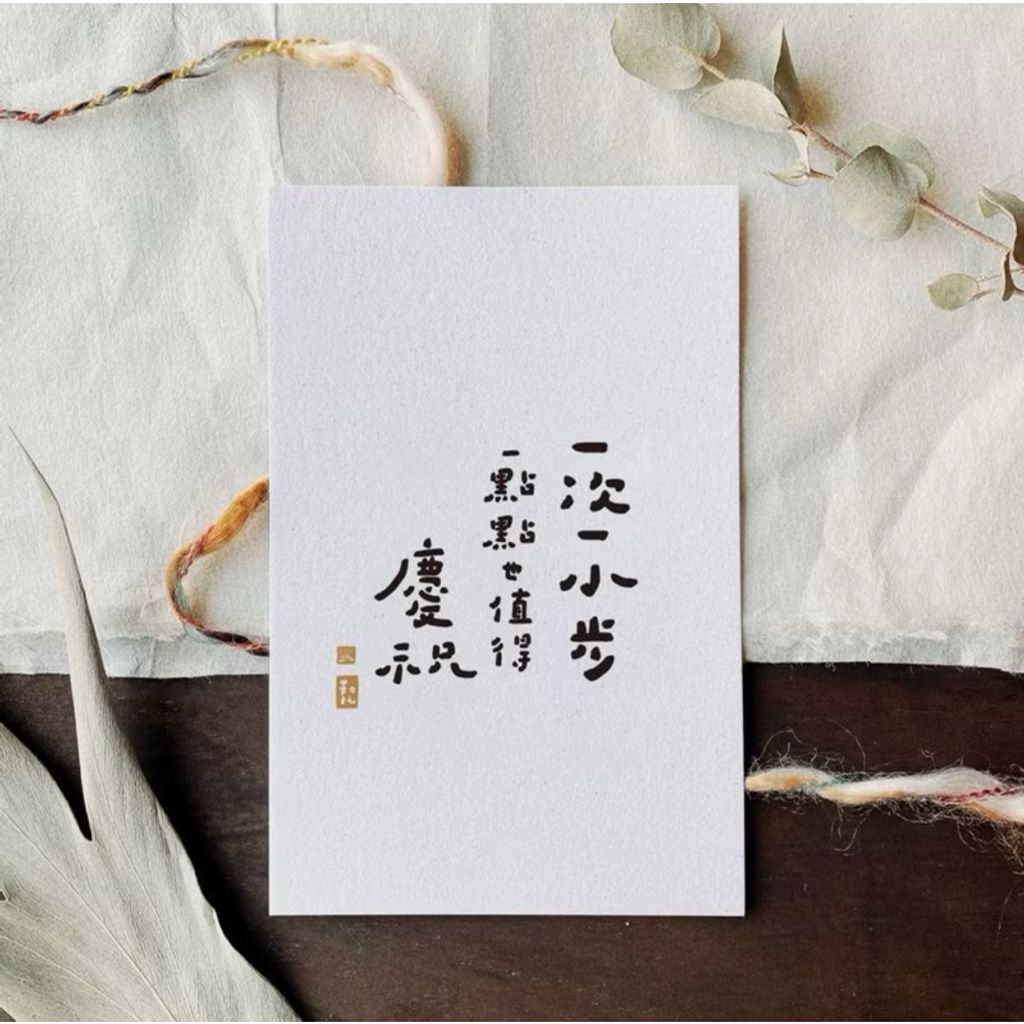 一次一小步
一點點也值得
慶祝